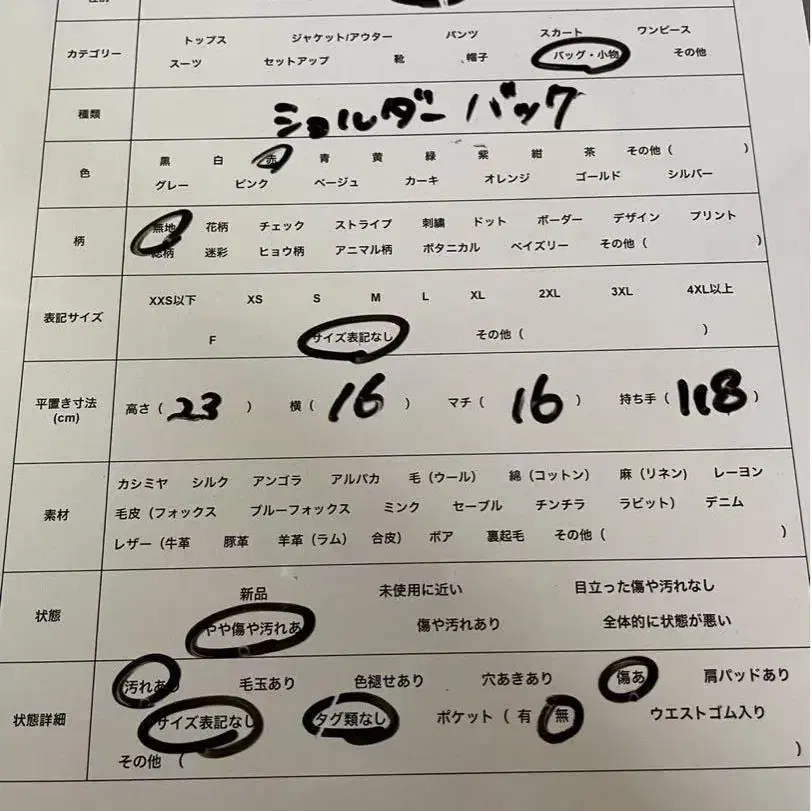 カテゴリー
トップス ジャケット/アウター パンツ スカート ワンピース
スーツ セットアップ 靴 帽子 バッグ・小物 その他
種類
ショルダーバック
色
黒 白 赤 青 黄 緑 紫 紺 茶 その他( )
グレー ピンク ベージュ カーキ オレンジ ゴールド シルバー
柄
無地 花柄 チェック ストライプ 刺繍 ドット ボーダー デザイン プリント
総柄 迷彩 ヒョウ柄 アニマル柄 ボタニカル ペイズリー その他( )
表記サイズ
XXS以下 XS S M L XL 2XL 3XL 4XL以上
F サイズ表記なし その他( )
平置き寸法
(cm)
高さ( 23 ) 横( 16 ) マチ( 16 ) 持ち手( 118 )
素材
カシミヤ シルク アンゴラ アルパカ 毛(ウール) 綿(コットン) 麻(リネン) レーヨン
毛皮(フォックス ブルーフォックス ミンク セーブル チンチラ ラビット) デニム
レザー(牛革 豚革 羊革(ラム) 合皮) ボア 裏起毛 その他( )
状態
新品 未使用に近い 目立った傷や汚れなし
やや傷や汚れあ 傷や汚れあり 全体的に状態が悪い
状態詳細
汚れあり 毛玉あり 色褪せあり 穴あきあり 傷あ 肩パッドあり
サイズ表記なし タグ類なし ポケット( 有 無 ウエストゴム入り
その他 ( )